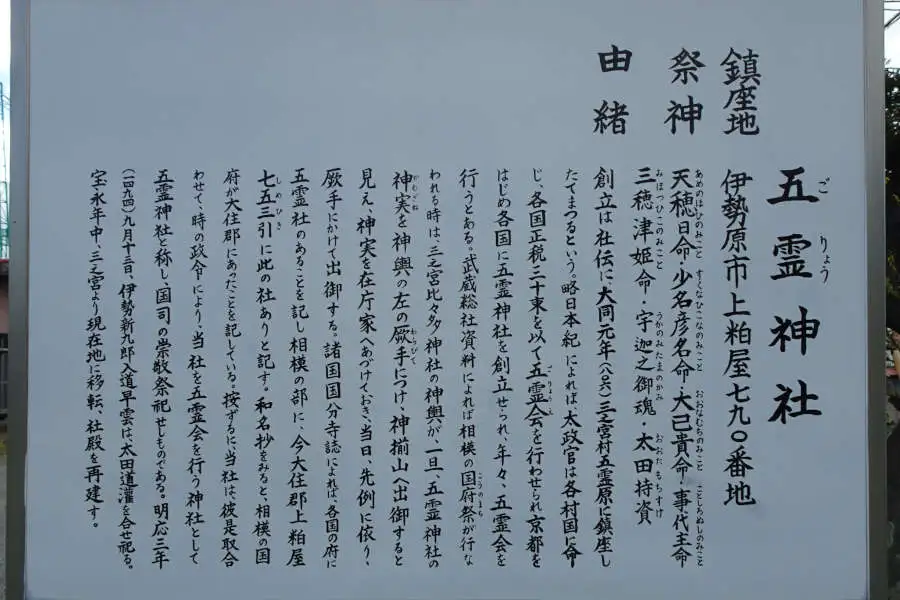 五霊神社
鎮座地 伊勢原市上粕屋七九〇番地
祭神 天穂日命・少名彦名命・大己貴命・事代主命
三穂津姫命・宇迦之御魂・太田持資
由緒 創立は社伝に大同元年（八〇六）三之宮村五霊原に鎮座し
たてまつるという。略日本紀によれば太政官は各村国に命
じ、各国正税三十束を以て五霊会を行わせられ京都を
はじめ各国に五霊神社を創立せられ、年々、五霊会を
行うとある。武蔵総社資料によれば相模の国府祭が行な
われる時は、三之宮比々多神社の神輿が、一旦、五霊神社の
神実を神輿の左の厥手につけ、神揃山へ出御すると
見え、神実を在庁家へあづけておき、当日、先例に依り、
厥手にかけて出御する。諸国国分寺誌によれば、各国の府に
五霊社のあることを記し相模の部に、今大住郡上粕屋
七五三引に此の社ありと記す。和名抄をみると、相模の国
府が大住郡にあったことを記している。按ずるに当社は、彼是取合
わせて、時の政令により、当社を五霊会を行う神社として
五霊神社と称し、国司の崇敬祭祀せしものである。明応三年
（一四九四）九月十三日、伊勢新九郎入道早雲は、太田道灌を合せ祀る。
宝永年中、三之宮より現在地に移転、社殿を再建す。